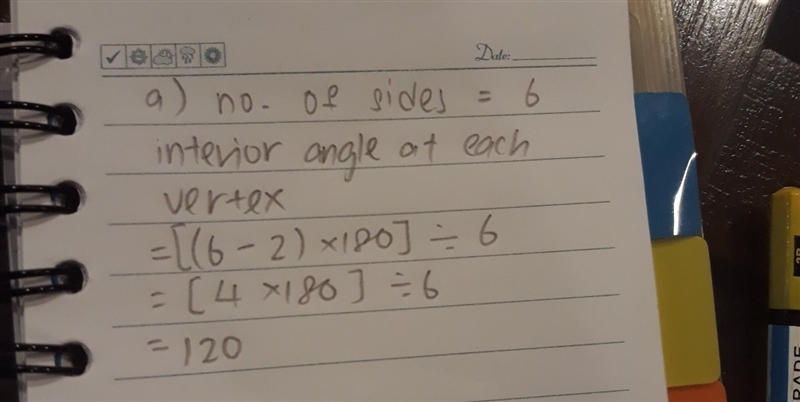 Date:
a) no. of sides = 6
interior angle at each
vertex
=[(6-2)×180]÷6
=[4×180]÷6
=120